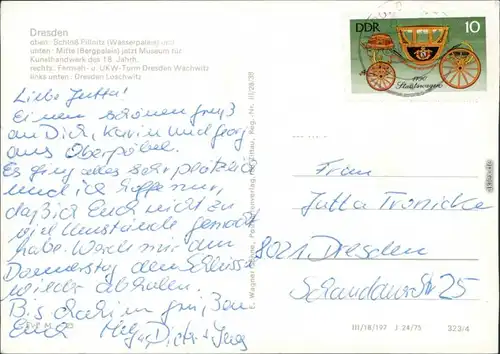 Dresden
oben: Schloß Pillnitz (Wasserpalais) und
unten: Mitte (Bergpalais) jetzt Museum für
Kunsthandwerk des 18. Jahrh.
rechts: Fernseh- u. UKW-Turm Dresden Wachwitz
links unten: Dresden Loschwitz
DDR 10
1790
Staatswagen
Liebe Jutta!
Einen schönen Gruß
an Dich, Karin und Georg
aus Oberpöbel.
Es ging alles sehr plötzlich
und ich hoffe nur,
daß ich Euch nicht zu
viel Umstände gemacht
habe. Werde mir am
Donnerstag den Schlüssel
wieder abholen.
Bis dahin
Euch Dieter + Ines
Frau
Jutta Tronicke
8021 Dresden
Schandauer Str 25
E. Wagner Reg.-Nr. III/28/38
III/18/197 J 24/75 323/4